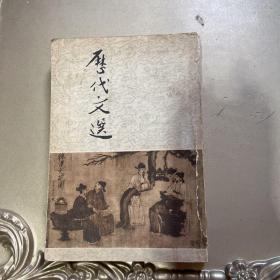 歷代文選